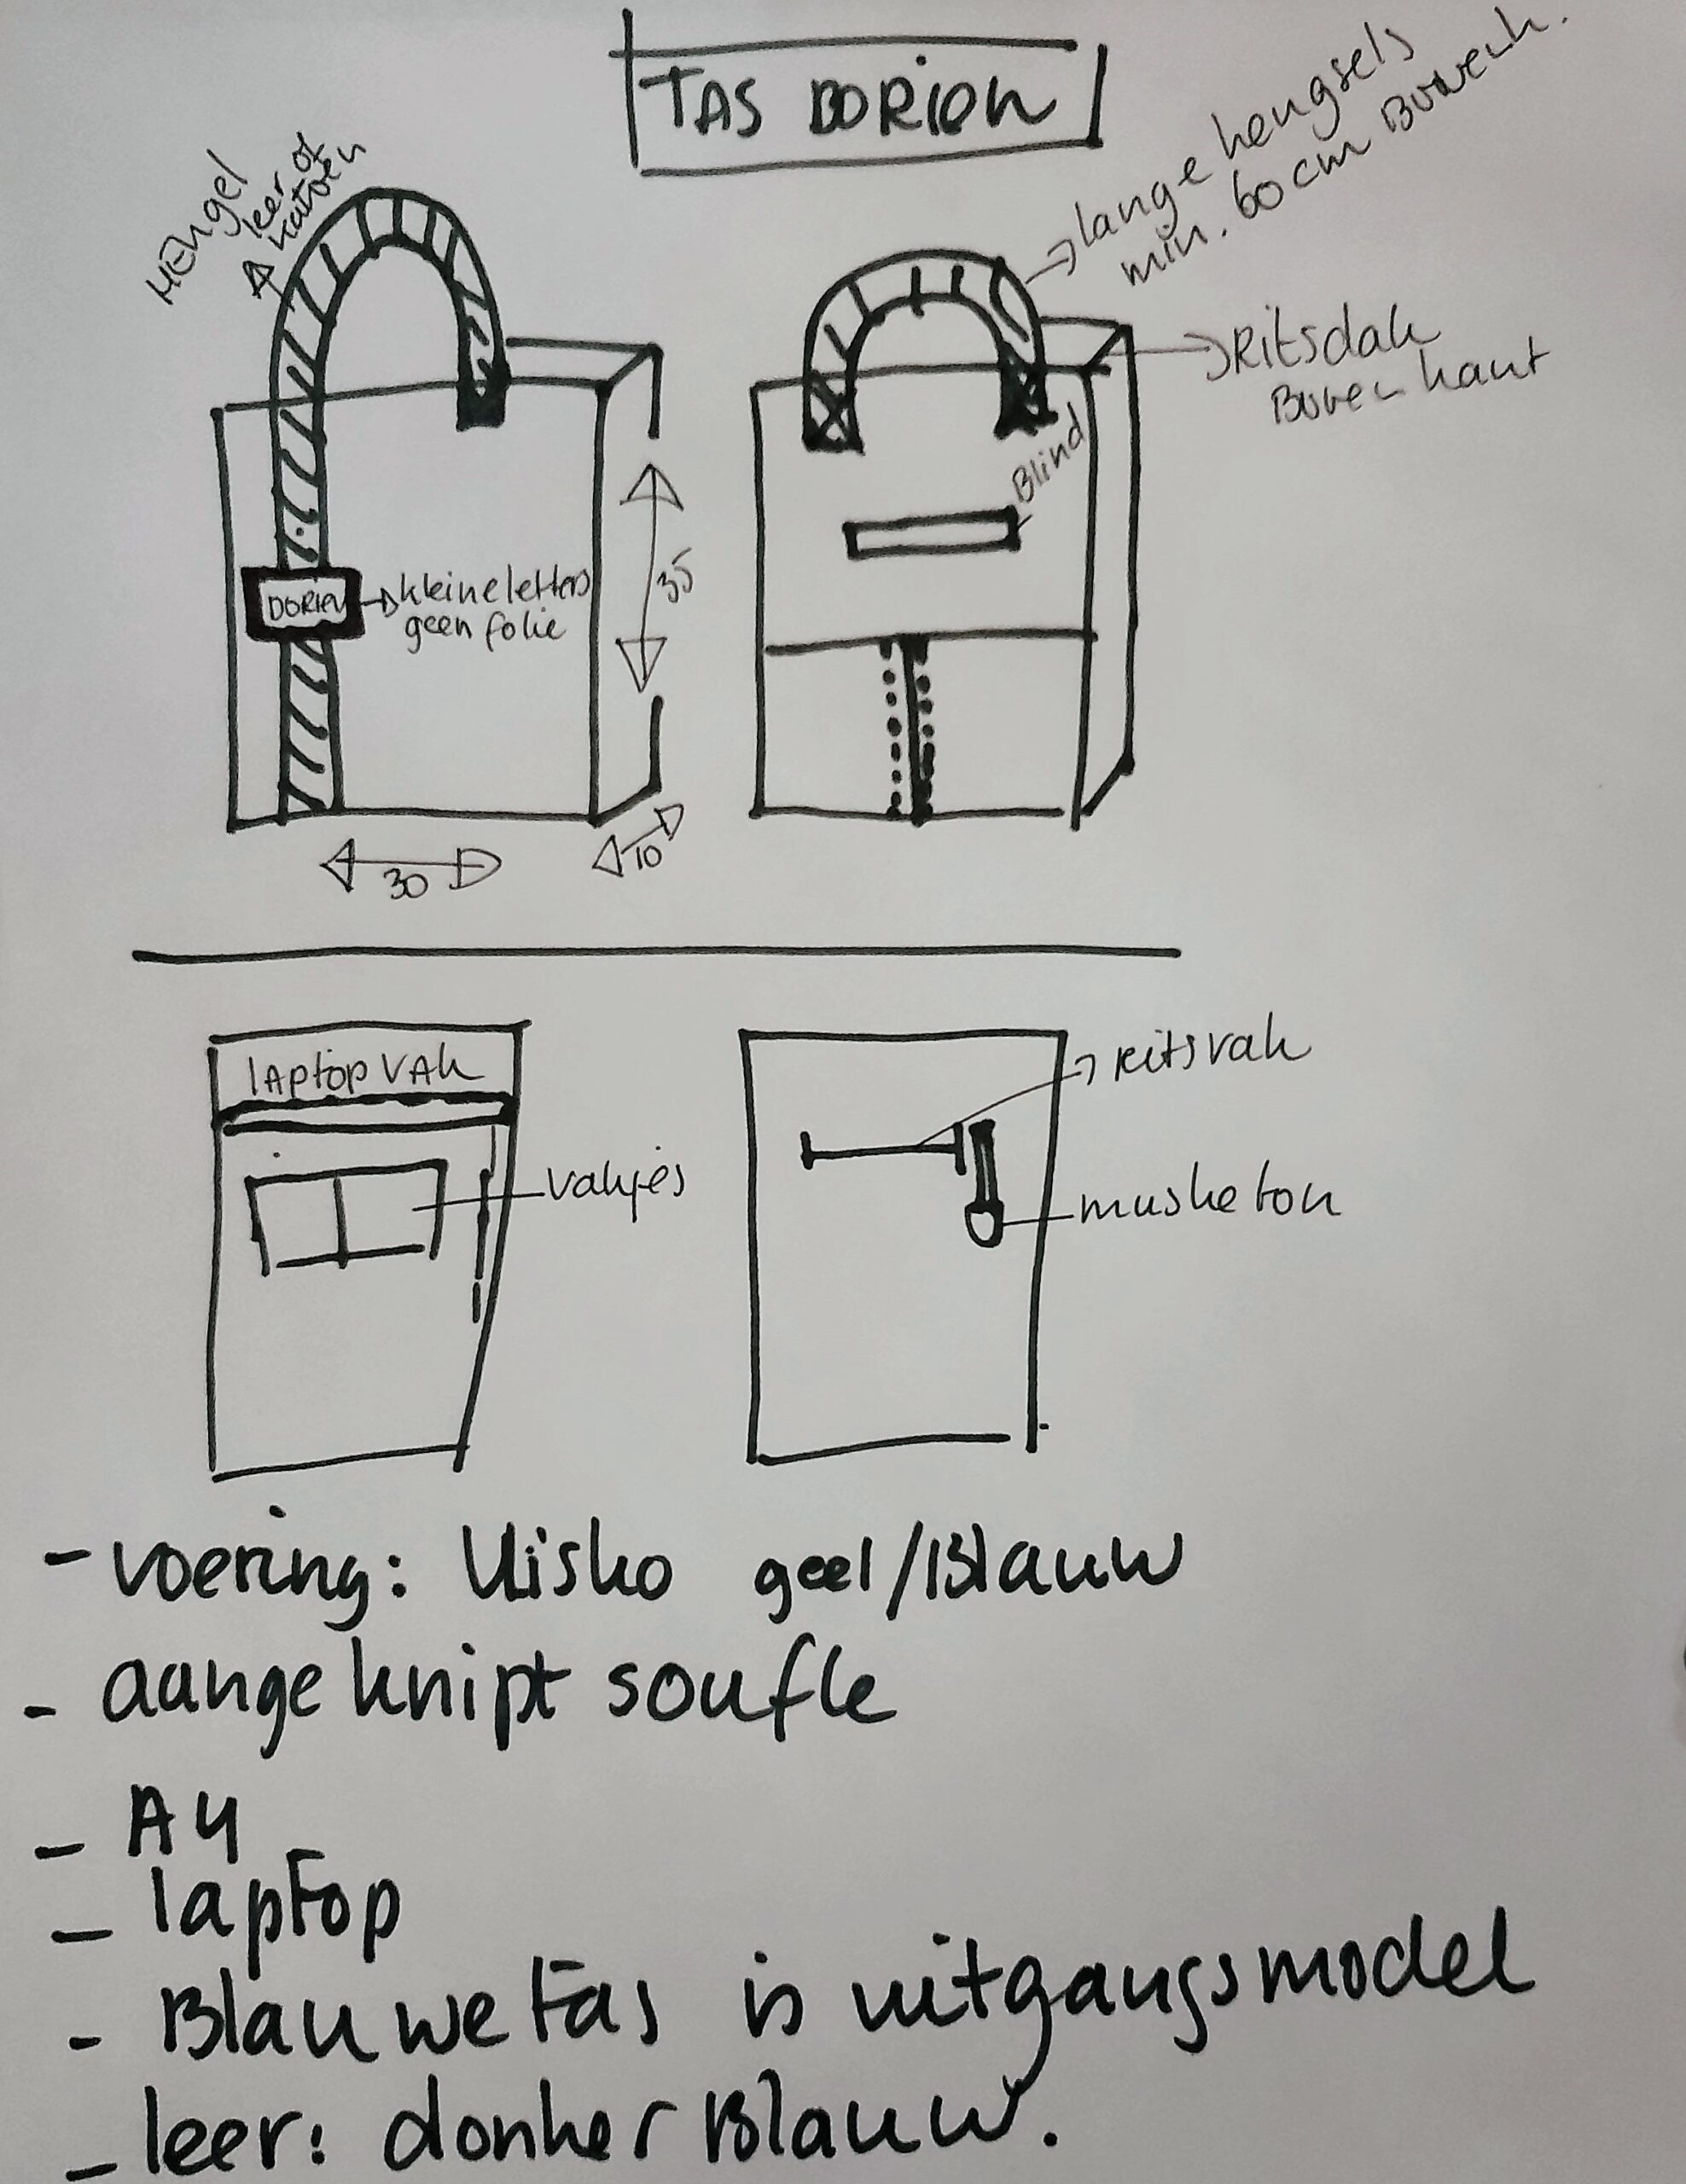 TAS DORIEN
HENgel
leer of
katoen
lange hengsels
min. 60 cm Bovenk.
Ritsdak
Bovenkant
Blind
DORIEN
kleine letters
geen folie
35
30
10
lAptop VAk
vakjes
Ritsvak
musketon
- voering: Kisko geel/Blauw
- aangeknipt soufle
- A4
- laptop
- Blauwe tas is uitgangsmodel
- leer: donker Blauw.